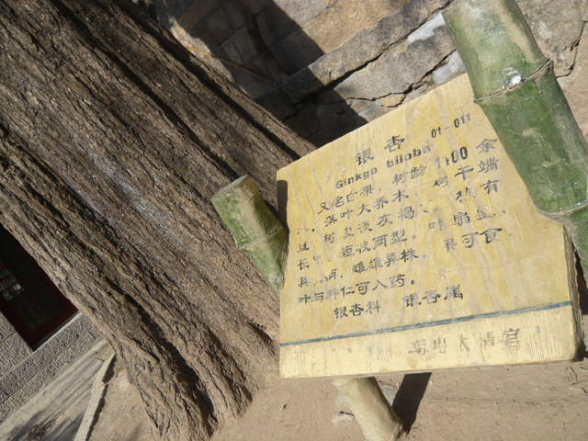 银杏 01-011
Ginkgo biloba
又名白果，树龄1100余
年。落叶大乔木，树干端
直，树皮淡灰褐，枝有
长短枝两型。叶扇型，
具长柄，雌雄异株，果可食
叶与种仁可入药。
银杏科 银杏属
崂山太清宫